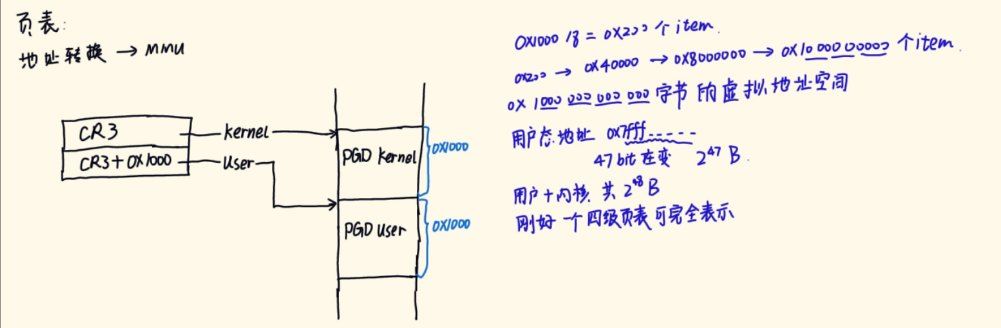 页表:
地址转换 → MMU
CR3
CR3+0X1000
kernel
User
PGD kernel
PGD User
0X1000
0X1000
0X1000 / 8 = 0X200 个 item.
0X200 → 0X40000 → 0X8000000 → 0X1000000000 个 item.
0X 1000 000 000 000 字节的虚拟地址空间
用户态地址 0X7fff.....
47 bit 在变 2^47 B.
用户+内核 共 2^48 B
刚好一个四级页表可完全表示